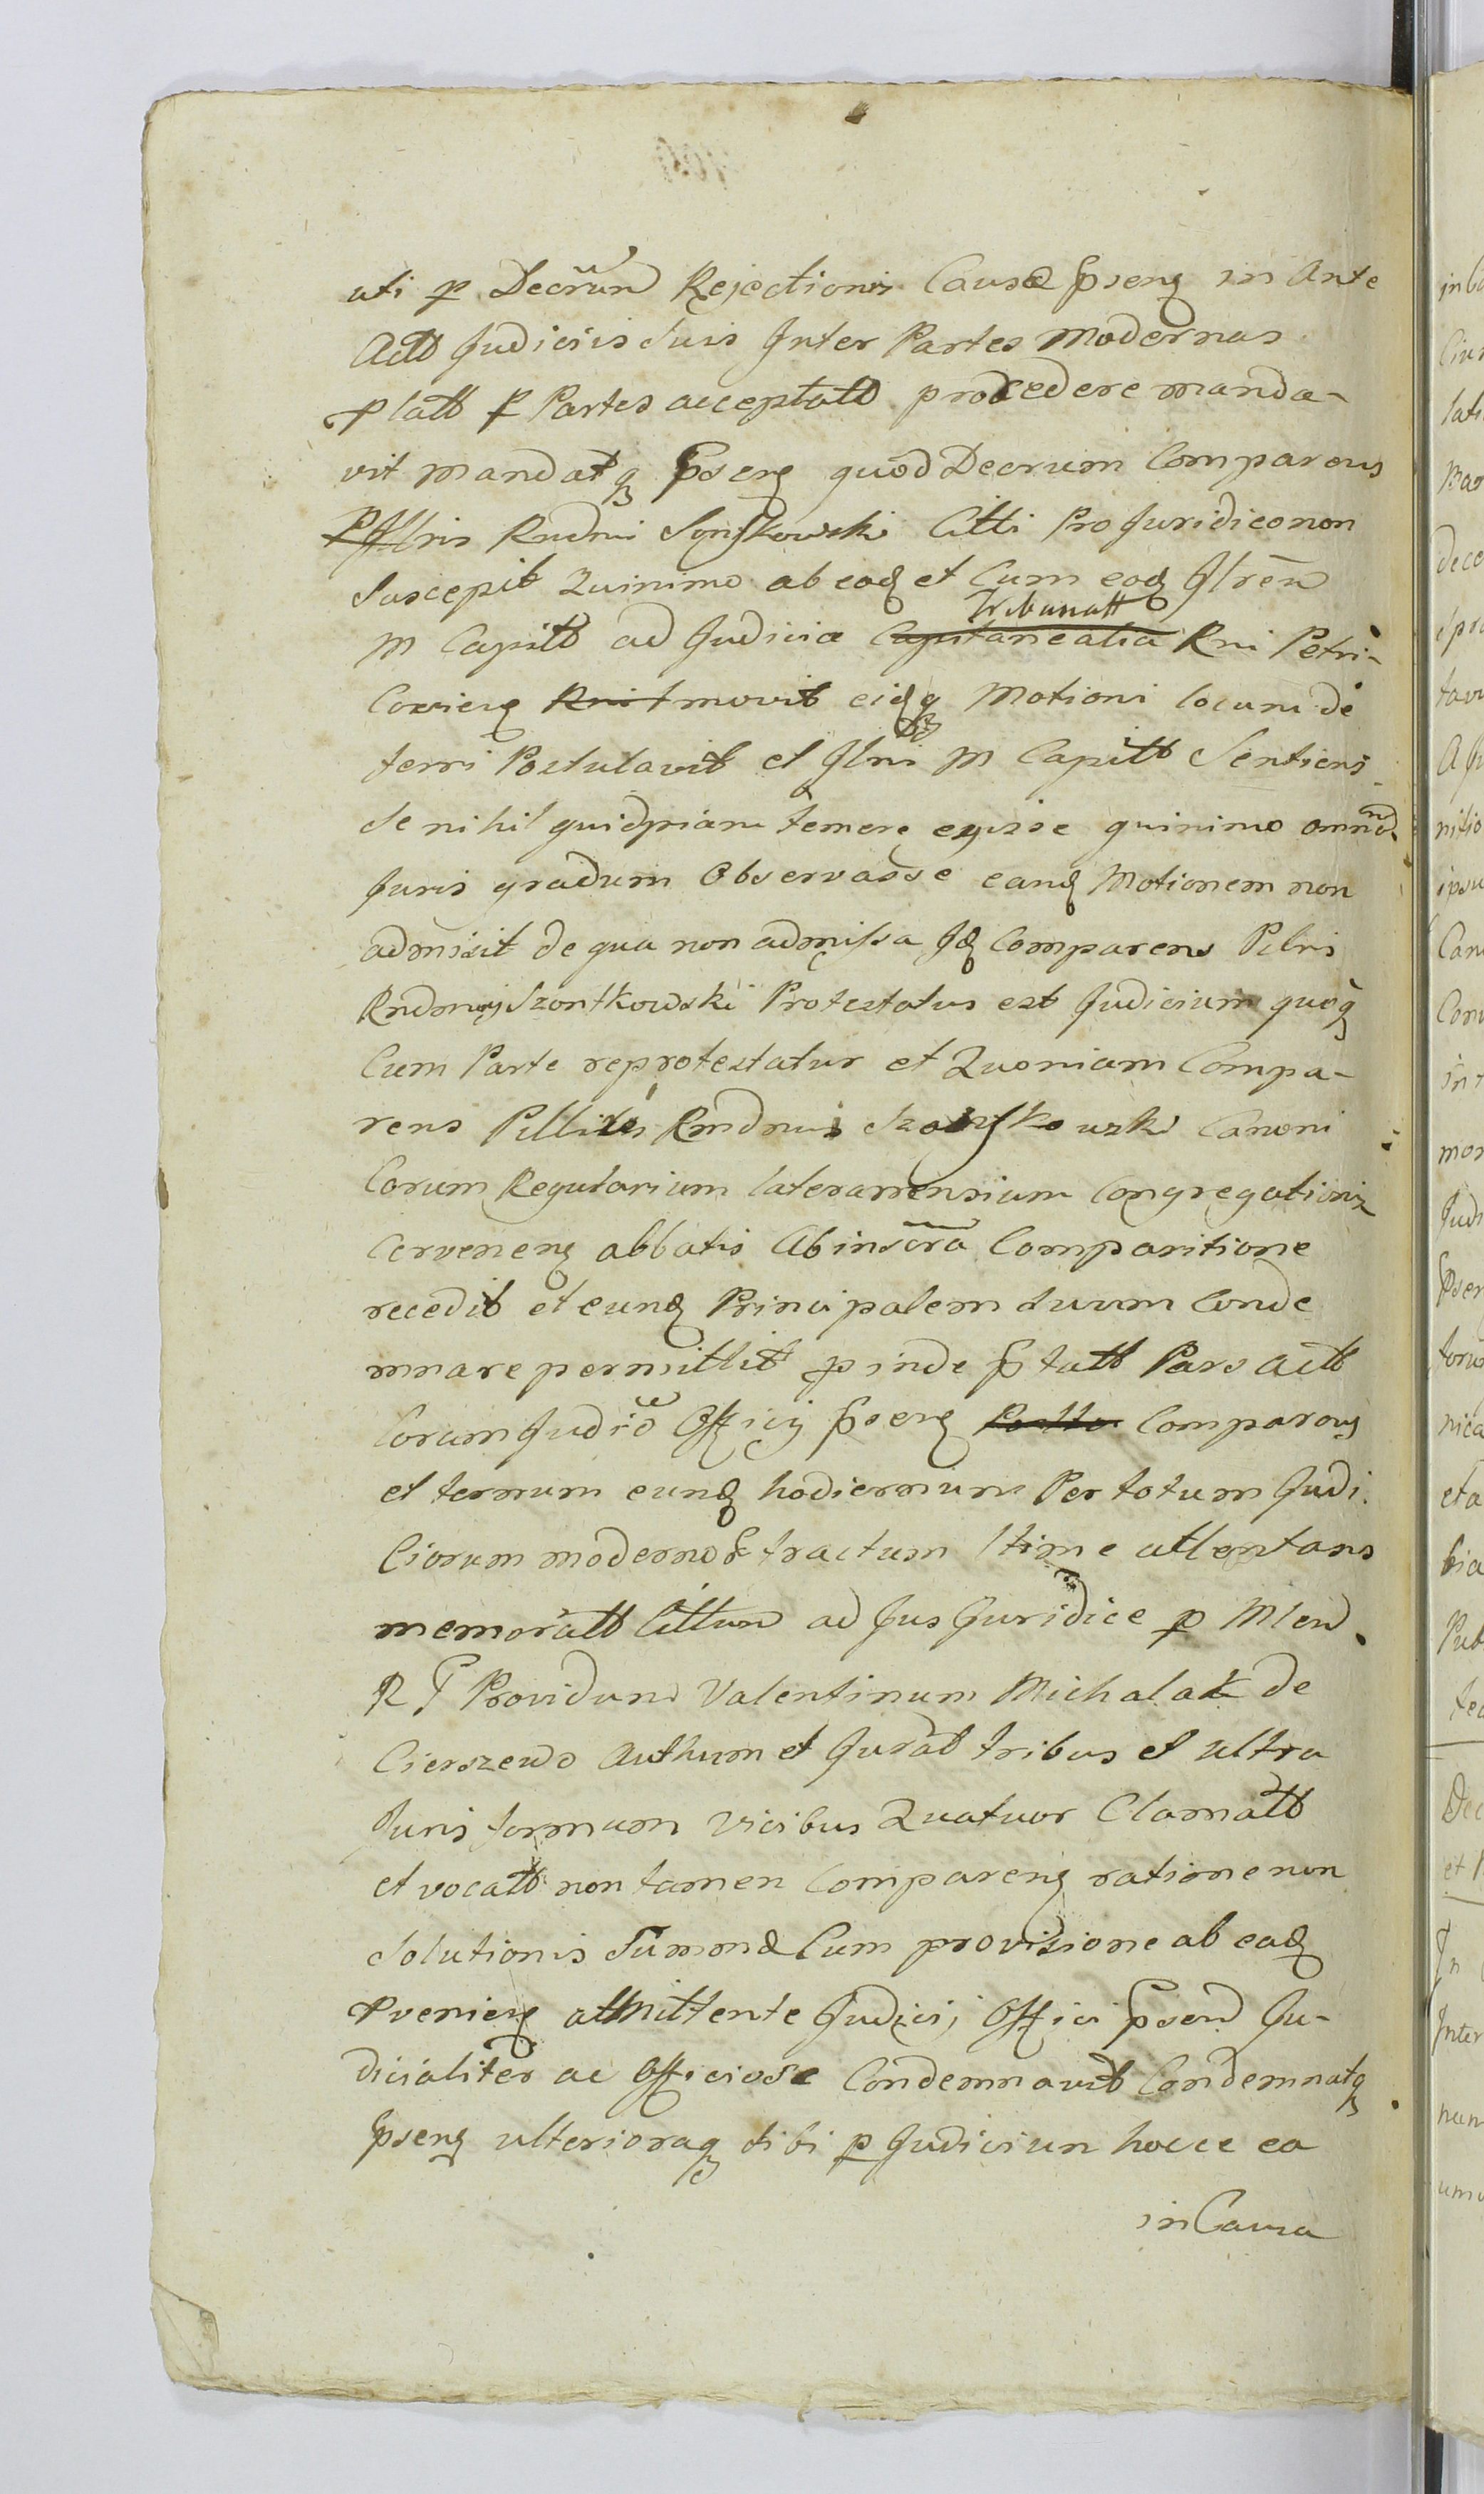 uti p Decrum Rejectionis Causæ pseng in Ante
Actt Judiciis suis Inter Partes Modernas
platt p Partes acceptatt procedere manda-
vit mandatq psenq quod Decrum Comparens
Pllris Rndmi Sontkowski Citti Pro Juridico non
Suscepit Quinimo ab eoq et Cum eoq Ilrem
M Capitt ad Judicia Capitanealia Tribunatt Rni Petri-
Covienq Rnit movit eidqq Motioni locum de
ferri Postulavit et Ilris M Capitt Sentiens
Se nihil quidpiam temere egisse quinimo omnem
Juris gradum Observasse eanq Motionem non
admisit de qua non admissa Iq Comparens Pllris
Rndmi Szontkowski Protestatus est Judicium quoq
Cum Parte reprotestatur et Quoniam Compa-
rens Pllitis Rndmi Szontkowski Canoni
Corum Regularium lateranensium Congregationis
Cervenenq abbatis Ab inscra Comparitione
recedit et eunq Principalem suum Conde
mnare permittit pinde ptatt Pars Actt
Coram Judiō Officii psenq Comparens
et termum eunq hodiernum Per totum Judi
Ciorum modernor tractum ltime attentans
memoratt Cittum ad Jus Juridice p Mlem
R P Providum Valentinum Michalak de
Cierszewo Authum et Jurat tribus et ultra
Juris formam vicibus Quatuor Clamatt
et vocatt non tamen Comparenq ratione non
Solutionis Summæ Cum provisione ab eadq
pvenienq admittente Judicii Offici psend Ju-
dicialiter ac Officiose Condemnavit Condemnatq
pseng ulterioraq sibi p Judicium hocce ea
in Causa